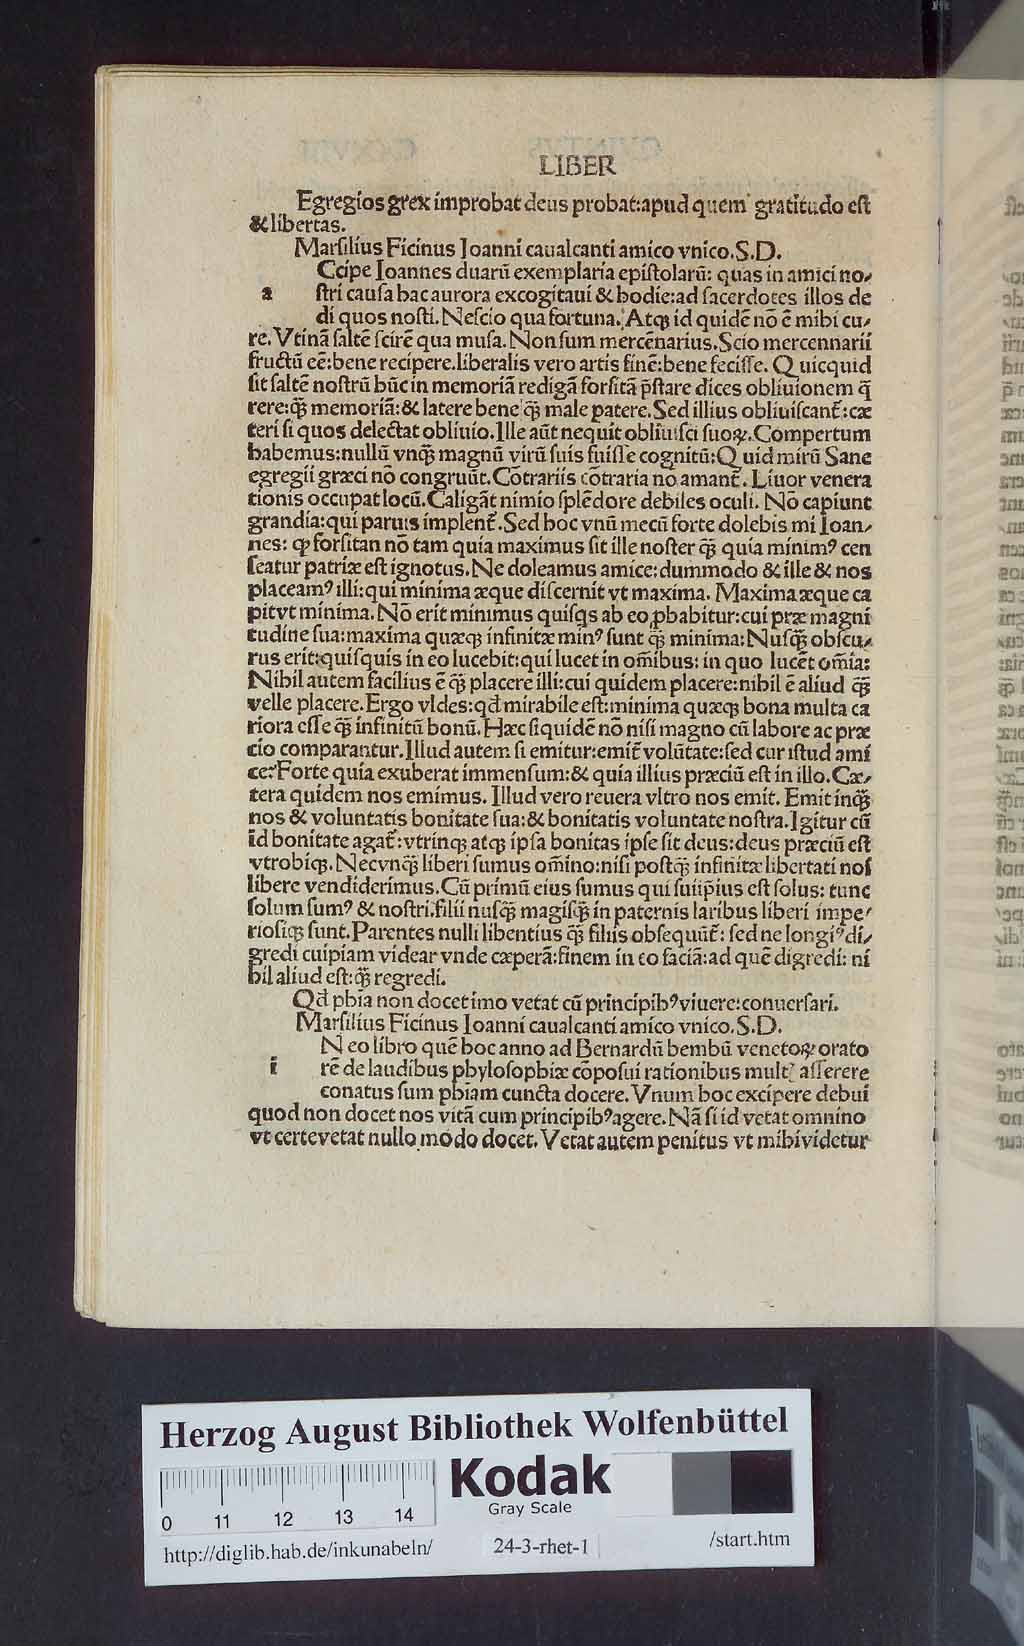 LIBER
Egregios grex improbat deus probat:apud quem gratitudo eſt
&libertas.
Marſilius Ficinus Ioanni caualcanti amico vnico.S.D.
Ccipe Ioannes duarū exemplaria epiſtolarū: quas in amici no⸗
a ſtri cauſa hac aurora excogitaui & hodie:ad ſacerdotes illos de
di quos noſti. Neſcio qua fortuna. Atqꝫ id quidē nō ē mihi cu⸗
re. Vtinā ſaltē ſcirē qua muſa. Non ſum mercēnarius. Scio mercennarii
fructū eē:bene recipere.liberalis vero artis finē:bene feciſſe. Quicquid
ſit ſaltē noſtrū hūc in memoriā redigā forſitā p̄ſtare dices obliuionem q̄
rere:q̄ꝫ memoriā:& latere bene q̄ꝫ male patere. Sed illius obliuiſcant̄:cæ
teri ſi quos delectat obliuio. Ille aūt nequit obliuiſci ſuoꝝ. Compertum
habemus:nullū vnq̄ꝫ magnū virū ſuis fuiſſe cognitū: Quid mirū Sane
egregii græci nō congruūt. Cōtrariis cōtraria no amant̄. Liuor venera
tionis occupat locū. Caligāt nimio ſplēdore debiles oculi. Nō capiunt
grandia:qui paruis implent̄. Sed hoc vnū mecū forte dolebis mi Ioan⸗
nes: ꝙ forſitan nō tam quia maximus ſit ille noſter q̄ꝫ quia minimꝰ cen
ſeatur patriæ eſt ignotus. Ne doleamus amice:dummodo & ille & nos
placeamꝰ illi:qui minima æque diſcernit vt maxima. Maxima æque ca
pit vt minima. Nō erit minimus quiſqs ab eo ꝓbabitur:cui præ magni
tudine ſua:maxima quæqꝫ infinitæ minꝰ ſunt q̄ꝫ minima: Nuſq̄ꝫ obſcu⸗
rus erit:quiſquis in eo lucebit:qui lucet in om̄ibus: in quo lucēt om̄ia:
Nihil autem facilius ē q̄ꝫ placere illi:cui quidem placere:nihil ē aliud q̄ꝫ
velle placere. Ergo vides:qd̄ mirabile eſt:minima quæqꝫ bona multa ca
riora eſſe q̄ꝫ infinitū bonū. Hæc ſiquidē nō niſi magno cū labore ac præ
cio comparantur. Illud autem ſi emitur:emit̄ volūtate:ſed cur iſtud ami
ce? Forte quia exuberat immenſum:& quia illius præciū eſt in illo. Cæ⸗
tera quidem nos emimus. Illud vero reuera vltro nos emit. Emit inq̄ꝫ
nos & voluntatis bonitate ſua:& bonitatis voluntate noſtra. Igitur cū
id bonitate agat̄:vtrinqꝫ atqꝫ ipſa bonitas ipſe ſit deus:deus præciū eſt
vtrobiqꝫ. Necvnq̄ꝫ liberi ſumus om̄ino:niſi poſtq̄ꝫ infinitæ libertati noſ
libere vendiderimus. Cū primū eius ſumus qui ſuiip̄ius eſt ſolus: tunc
ſolum ſumꝰ & noſtri.filii nuſq̄ꝫ magiſq̄ꝫ in paternis laribus liberi impe⸗
rioſiqꝫ ſunt. Parentes nulli libentius q̄ꝫ filiis obſequūt̄: ſed ne longiꝰ di⸗
gredi cuipiam videar vnde cæperā:finem in eo faciā:ad quē digredi: ni
hil aliud eſt:q̄ꝫ regredi.
Qd̄ phia non docet imo vetat cū principibꝰ viuere:conuerſari.
Marſilius Ficinus Ioanni caualcanti amico vnico.S.D.
N eo libro quē hoc anno ad Bernardū bembū venetoꝝ orato
i rē de laudibus phyloſophiæ cōpoſui rationibus multꝭ aſſerere
conatus ſum phiam cuncta docere. Vnum hoc excipere debui
quod non docet nos vitā cum principibꝰ agere. Nā ſi id vetat omnino
vt certe vetat nullo modo docet. Vetat autem penitus vt mihi videtur
Herzog August Bibliothek Wolfenbüttel
Kodak
Gray Scale
0 11 12 13 14
http://diglib.hab.de/inkunabeln/ 24-3-rhet-1 /start.htm